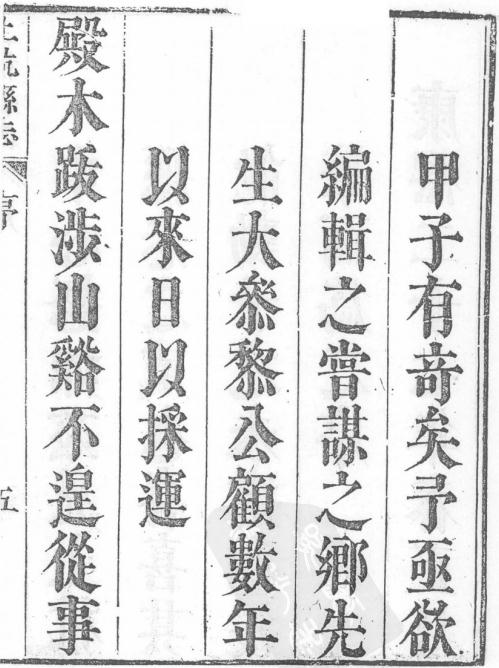 甲子有奇矣予亟欲
編輯之嘗謀之鄉先
生大叅黎公顧數年
以來日以採運
殿木跋涉山谿不遑從事
上杭縣志 序 五